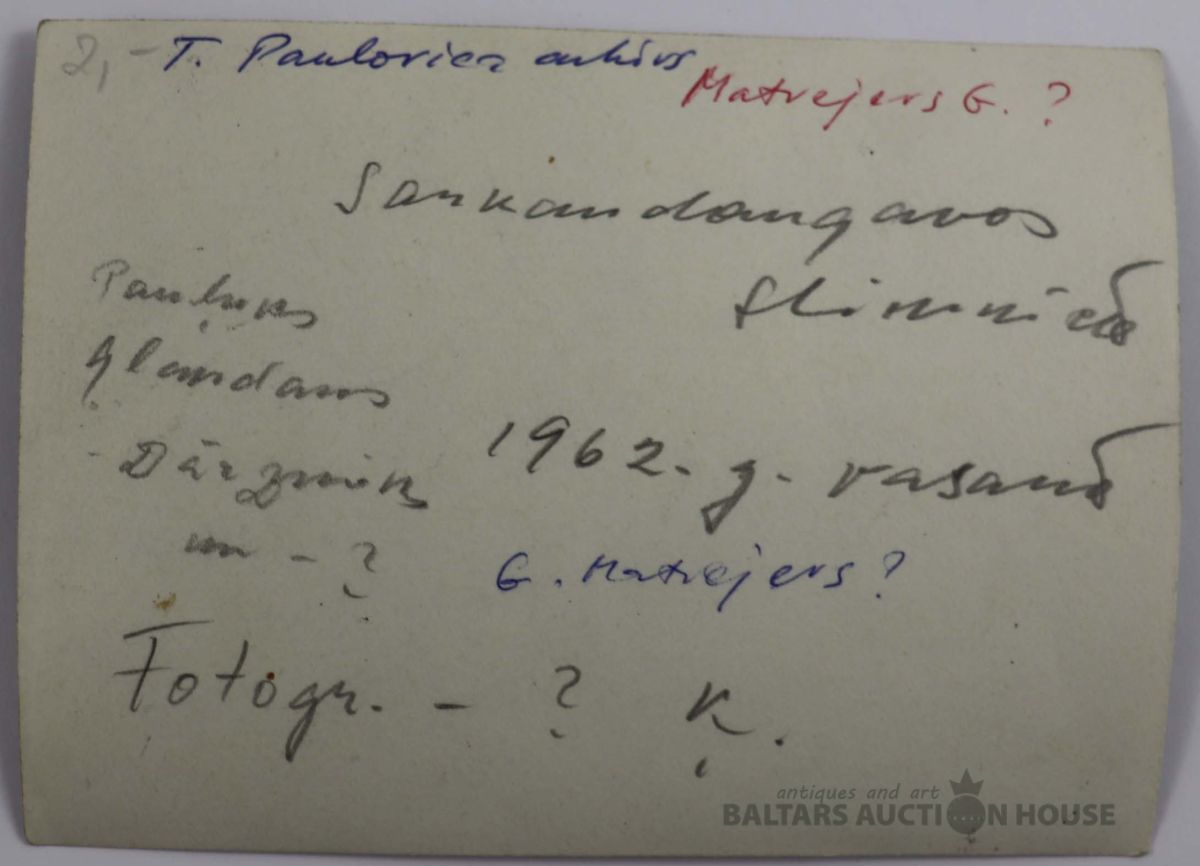 2,- T. Paulovica arhīvs
Matvejevs G. ?
Sarkandaugavas
slimnīcā
Pauļuks
Glaudāns
Dārznieks
un - ?
1962. g. vasarā
G. Matvejevs?
Fotogr. - ? Ķ.
antiques and art
BALTARS AUCTION HOUSE